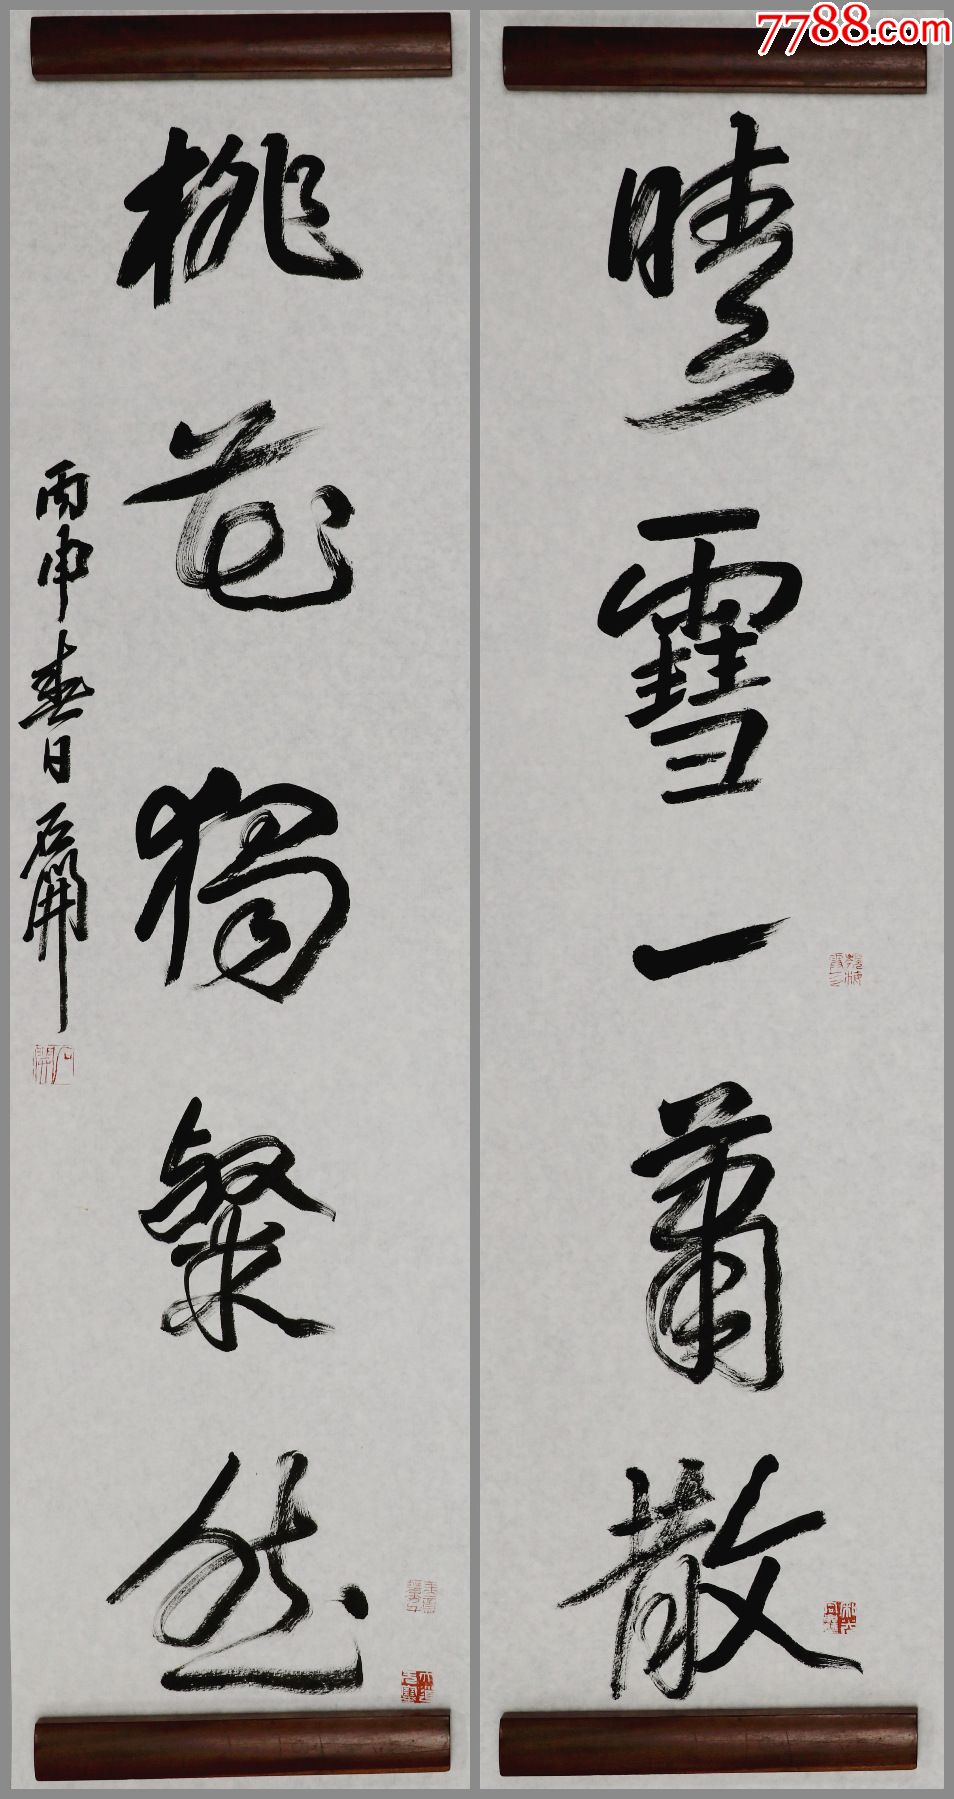 7788.com
晴雪一蕭散
桃花獨粲然
丙申春日石開